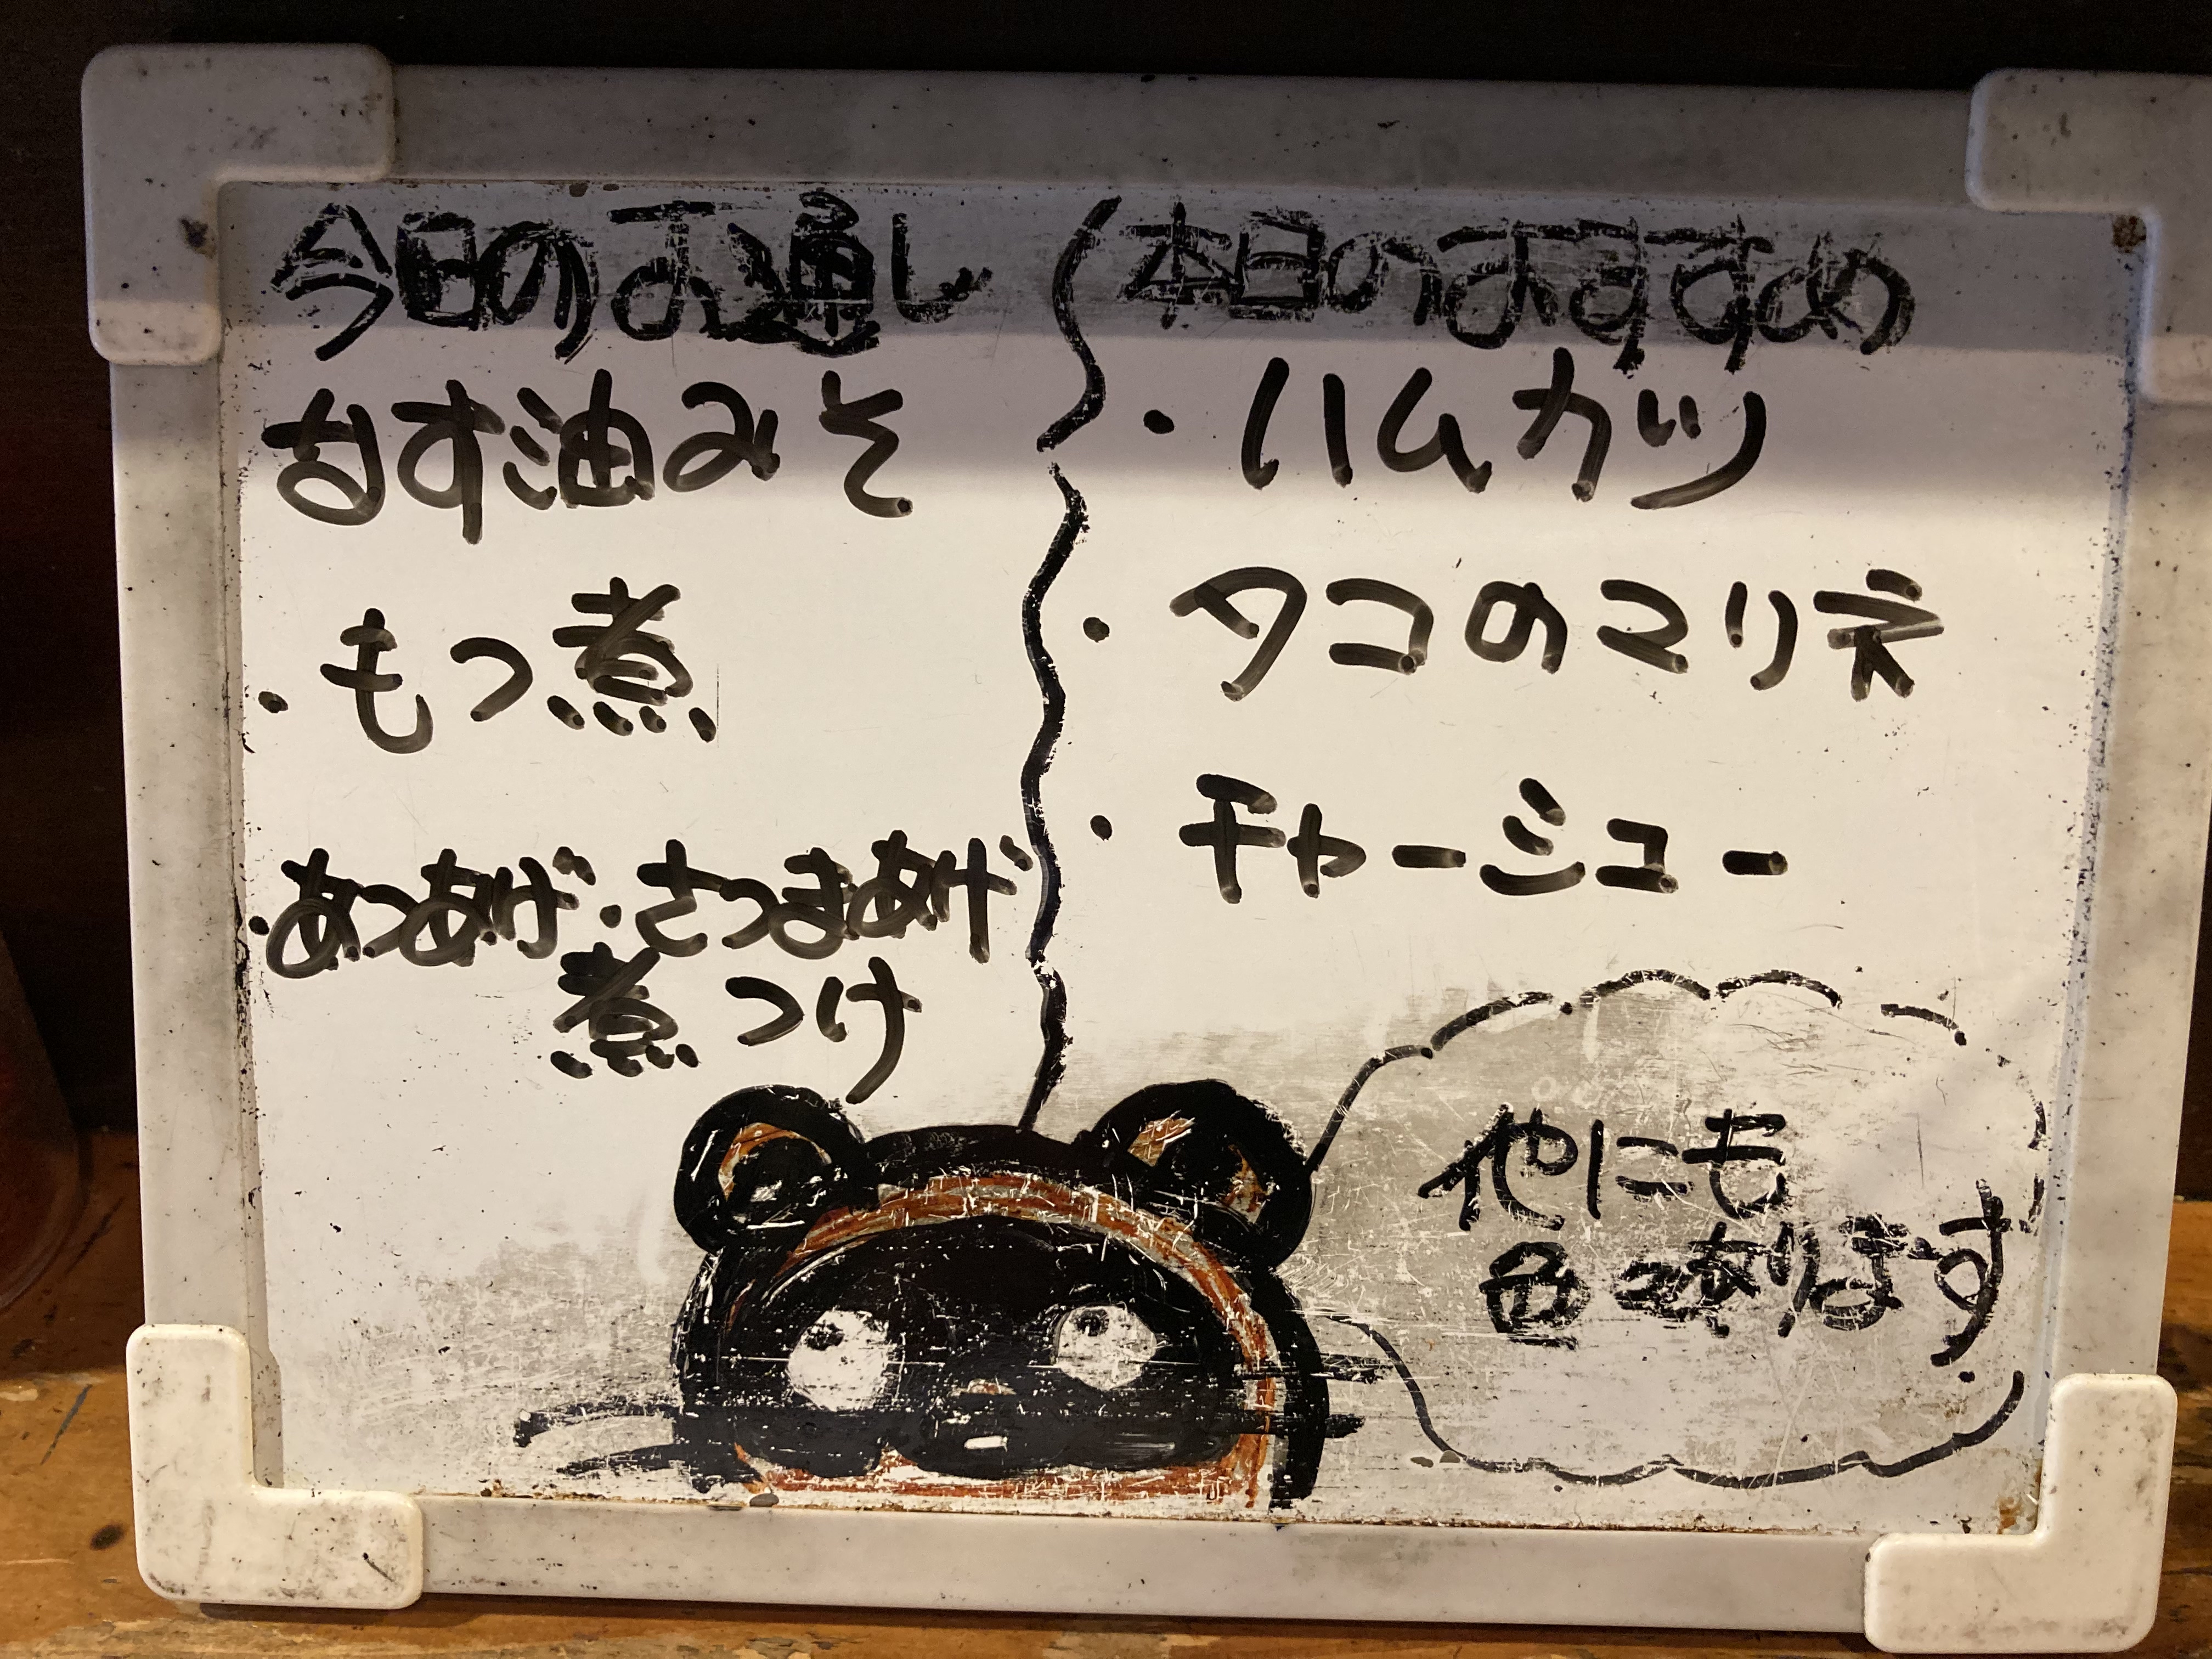 今日のお通し
なす油みそ
・もつ煮
・あつあげ・さつまあげ
煮つけ
本日のおすすめ
・ハムカツ
・タコのマリネ
・チャーシュー
他にも
色々あります